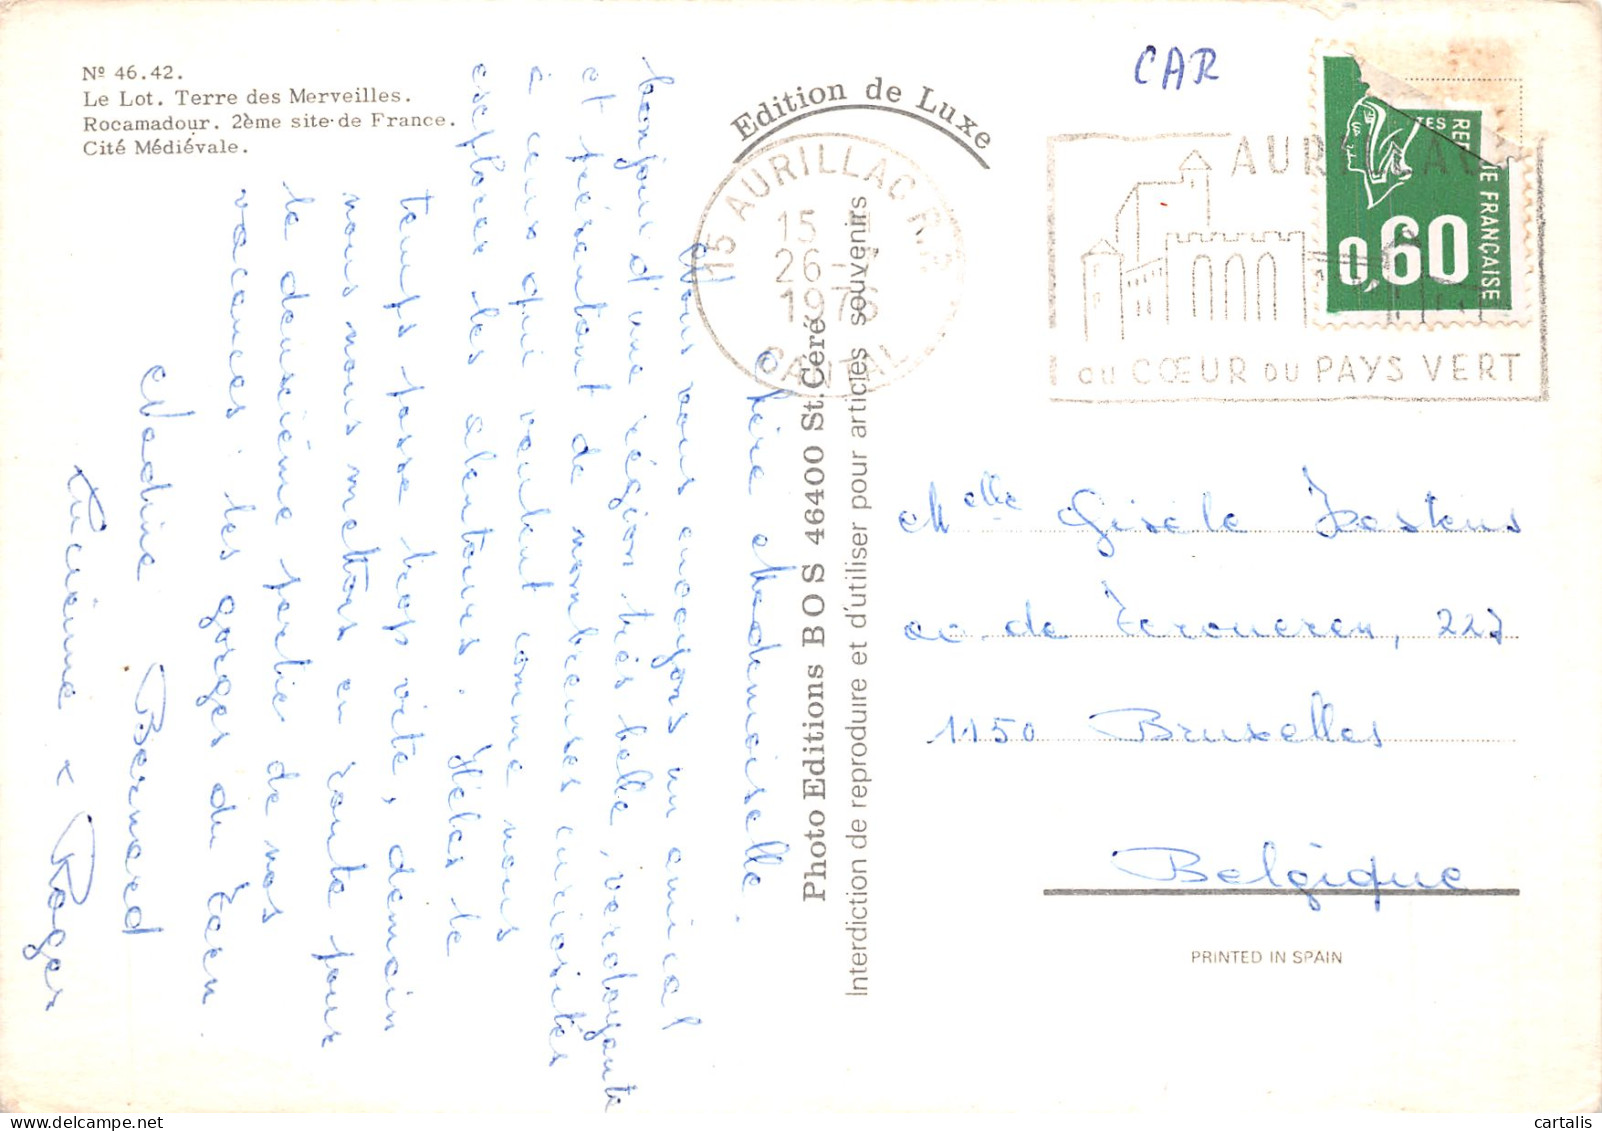 Nº 46.42.
Le Lot. Terre des Merveilles.
Rocamadour. 2ème site de France.
Cité Médiévale.
Edition de Luxe
CAR
15 AURILLAC R.P.
15
26 -
1976
CANTAL
AURILLAC
au CŒUR DU PAYS VERT
REPUBLIQUE FRANÇAISE
0,60
Photo Editions BOS 46400 St. Céré
Interdiction de reproduire et d'utiliser pour articles souvenirs
Chère Mademoiselle.
Nous vous envoyons un amical
bonjour d'une région très belle, verdoyante
et présentant de nombreuses curiosités
à ceux qui veulent comme nous
explorer les alentours. Hélas le
temps passe trop vite, demain
nous nous mettons en route pour
la deuxième partie de nos
vacances : les gorges du Tarn
Nadine Bernard
Lucienne & Roger
Melle Gisèle
de Tervueren, 227
1150 Bruxelles
Belgique
PRINTED IN SPAIN
cartalis sur Delcampe.net